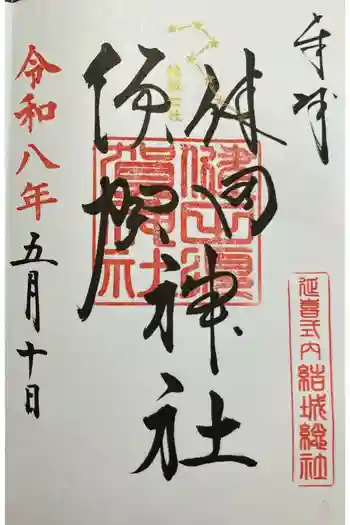 奉拝
健田
須賀
神社
健田須
賀神社
延喜式内 結城総社
令和八年 五月十日